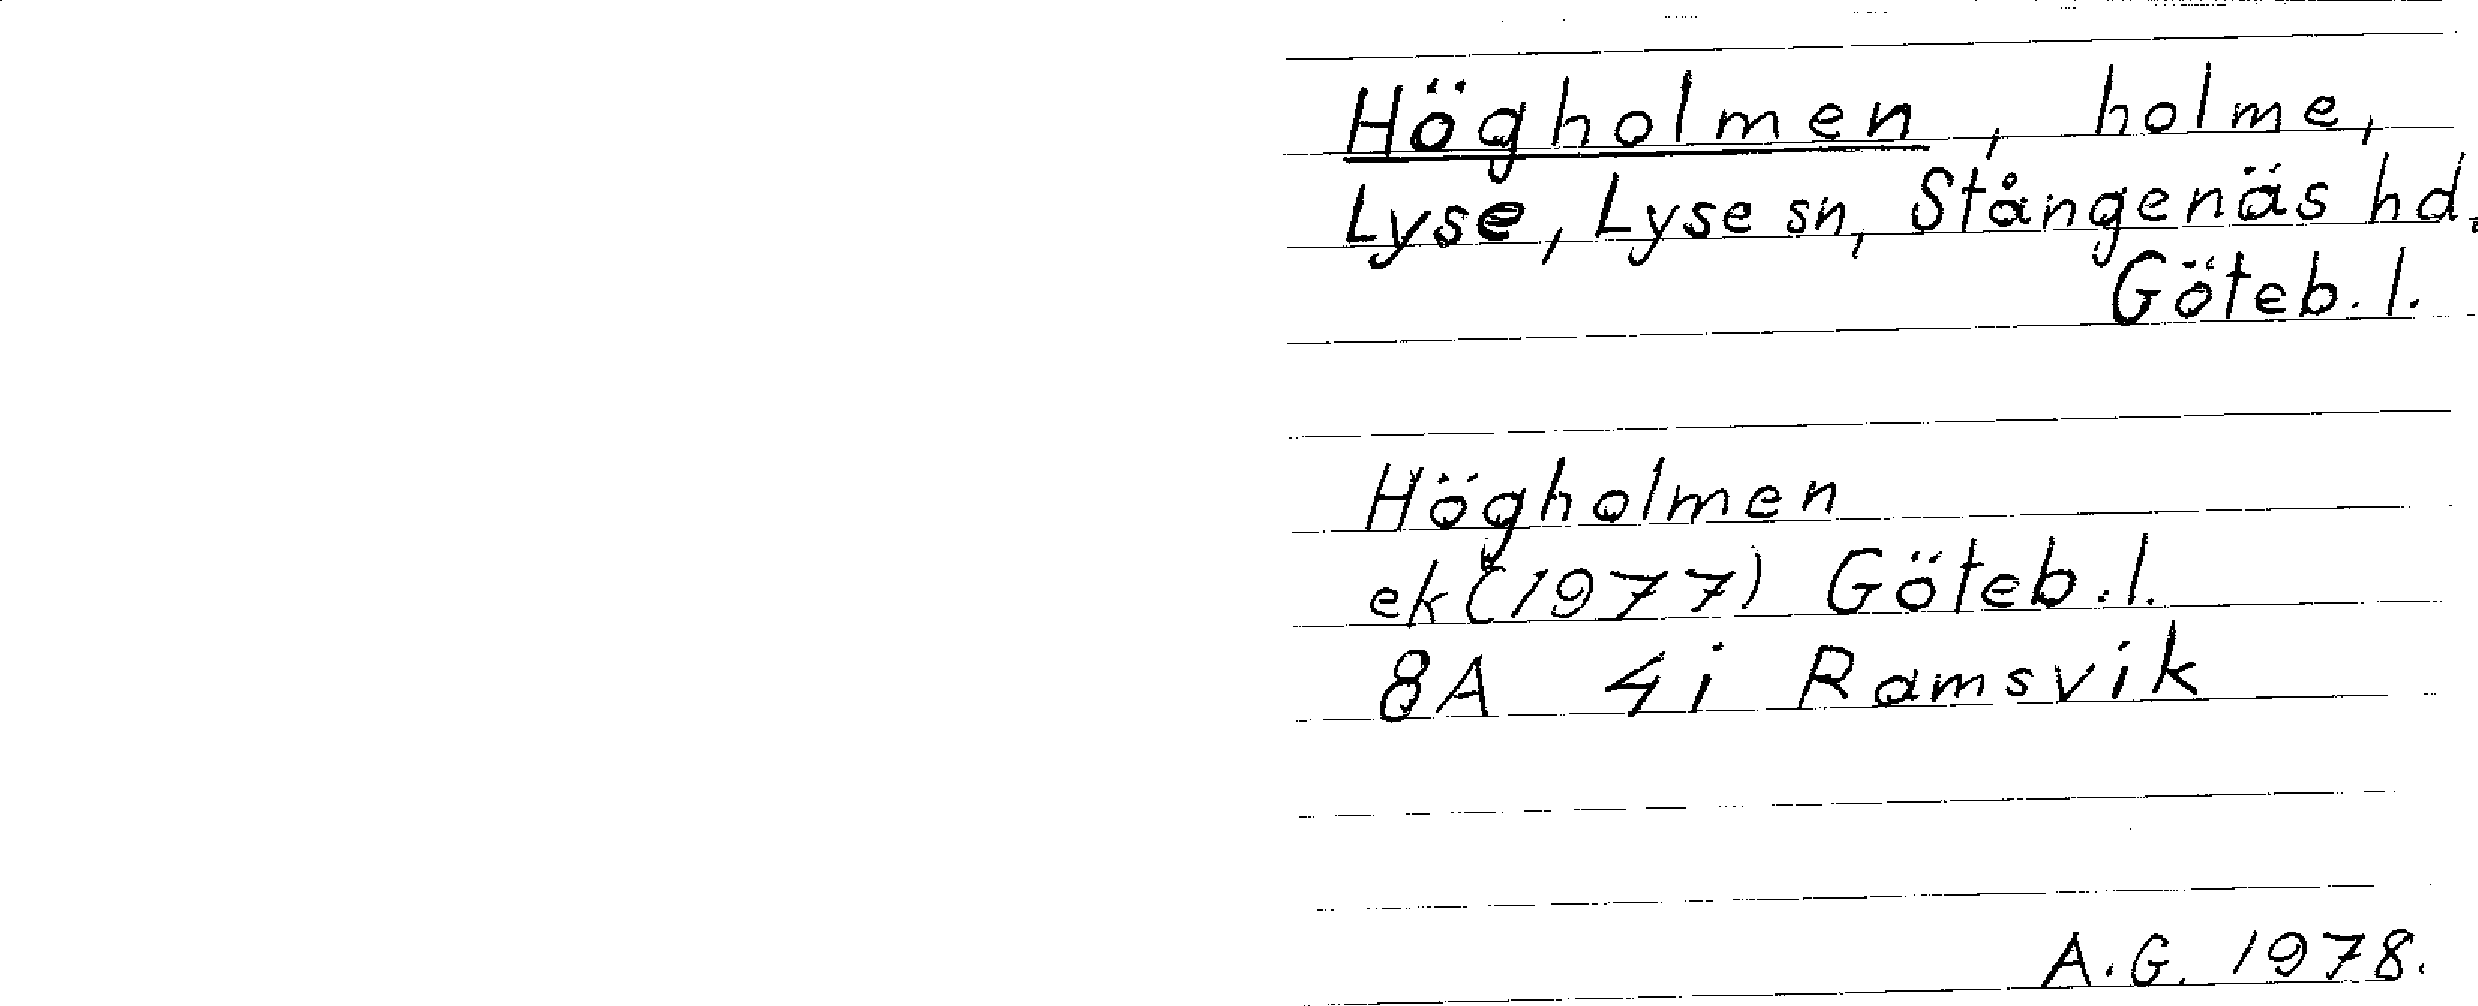 Högholmen, holme,
Lyse, Lyse sn, Stångenäs hd.
Göteb. l.
Högholmen
ek (1977) Göteb. l.
8A 4i Ramsvik
A.G. 1978.